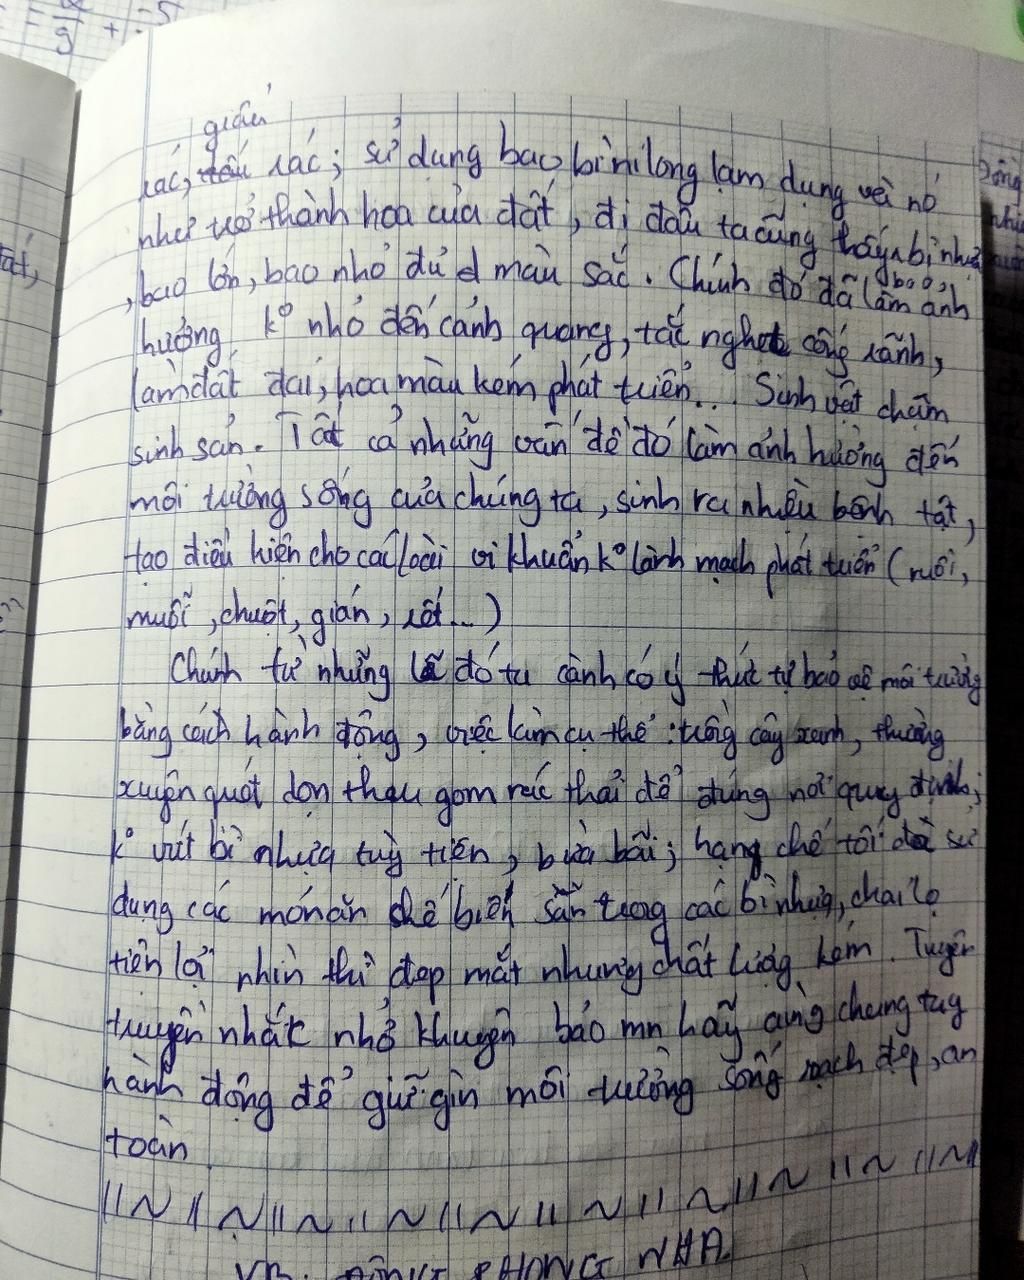 giấy
rác, rác; sử dụng bao bì nilong lạm dụng và nó
như trở thành hoa của đất, đi đâu ta cũng thấy bì nhựa
bao,
, bao lớn, bao nhỏ đủ màu sắc. Chính đó đã làm ảnh
hưởng k° nhỏ đến cảnh quang, tắc nghẹt cống rãnh,
làm đất đai, hoa màu kém phát triển... Sinh vật chậm
sinh sản. Tất cả những vấn đề đó làm ảnh hưởng đến
môi trường sống của chúng ta, sinh ra nhiều bệnh tật,
tạo điều kiện cho các loài vi khuẩn k° lành mạch phát triển (ruồi,
muỗi, chuột, gián, rết...)
Chính từ những lẽ đó ta cành có ý thức tự bảo vệ môi trường
bằng cách hành động, việc làm cụ thể: trồng cây xanh, thường
xuyên quét dọn thau gom rác thải để đúng nơi quy định;
k° vứt bì nhựa tuỳ tiện, bừa bãi; hạng chế tối đa sử
dụng các món ăn chế biến sẵn trong các bì nhựa, chai lọ
tiện lợi nhìn thì đẹp mắt nhưng chất lượng kém. Tuyên
truyền nhắc nhở khuyên bảo mn hãy cùng chung tay
hành động để giữ gìn môi trường sống sạch đẹp, an
toàn
VB: ĐỘNG PHONG NHA.